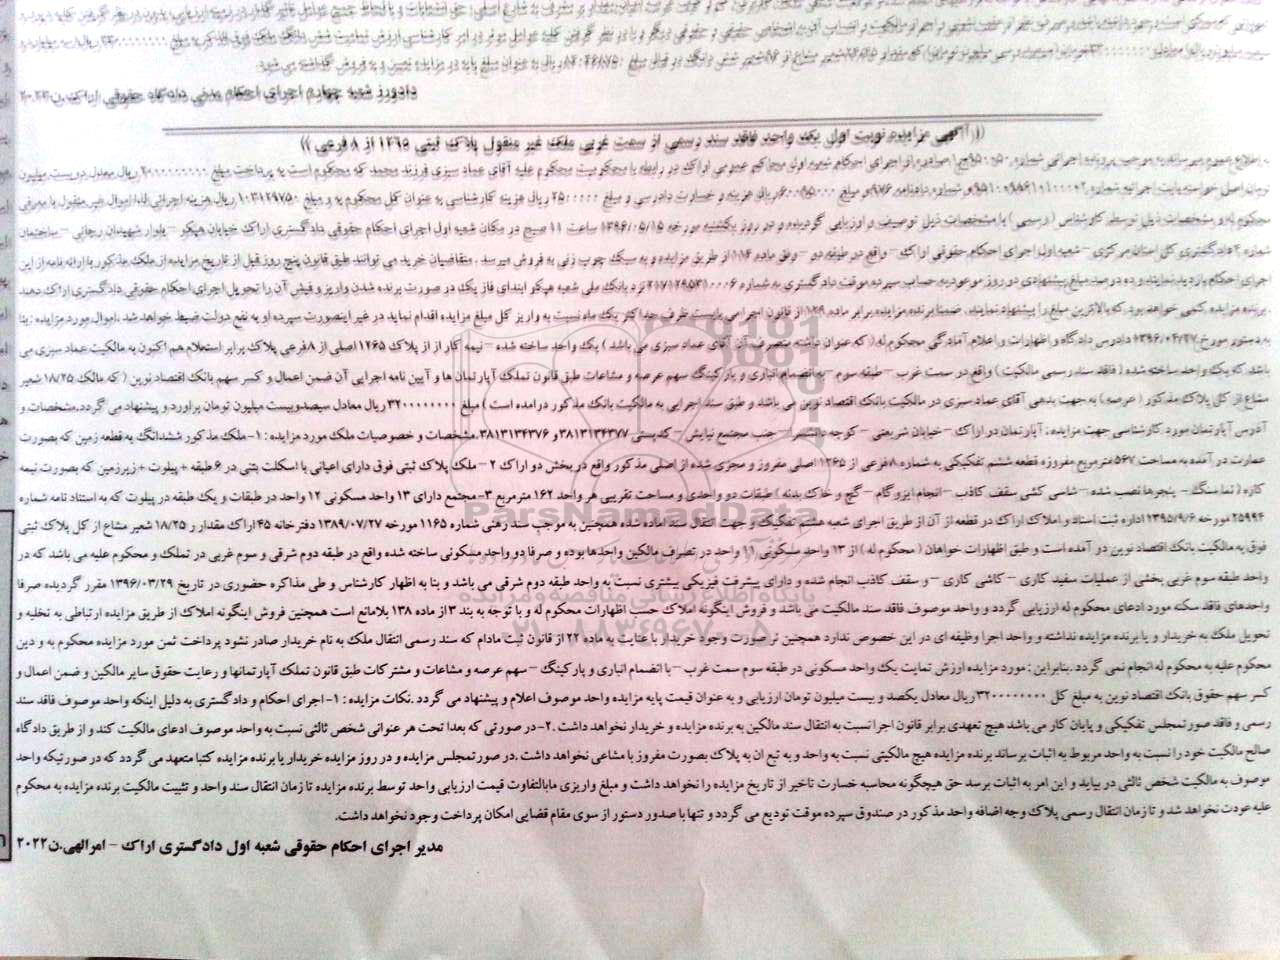 دادورز شعبه چهارم اجرای احکام مدنی دادگاه حقوقی اراک.ن۲۰۲۳
(( آگهی مزایده نوبت اول یک واحد فاقد سند رسمی از سمت غربی ملک غیر منقول پلاک ثبتی ۱۲۶۵ از ۸ فرعی ))
به اطلاع عموم میرساند به موجب پرونده اجرائی شماره صادره از اجرای احکام شعبه اول محاکم عمومی اراک در رابطه با محکومیت محکوم علیه آقای عماد سبزی فرزند محمد که محکوم است به پرداخت مبلغ ۲۰۰۰۰۰۰۰۰۰ ریال معادل دویست میلیون
تومان اصل خواسته بابت اجرائیه شماره و شماره دادنامه ۹۷۶ و مبلغ ۶۰۰۹۵۰۰۰ ریال هزینه و خسارت دادرسی و مبلغ ۲۵۰۰۰۰۰ ریال هزینه کارشناسی به عنوان کل محکوم به و مبلغ ۱۰۳۱۲۹۷۵۰ ریال هزینه اجرائی لذا اموال غیر منقول با معرفی
محکوم له و مشخصات ذیل توسط کارشناس (رسمی) با مشخصات ذیل توصیف و ارزیابی گردیده و در روز یکشنبه مورخه ۱۳۹۶/۰۵/۱۵ ساعت ۱۱ صبح در مکان شعبه اول اجرای احکام حقوقی دادگستری اراک خیابان هپکو – بلوار شهیدان رجائی – ساختمان
شماره ۲ دادگستری کل استان مرکزی – شعبه اول اجرای احکام حقوقی اراک – واقع در طبقه دو – وفق ماده ۱۱۴ از طریق مزایده و به سبک چوب زنی به فروش میرسد. متقاضیان خرید می توانند طبق قانون پنج روز قبل از تاریخ مزایده از ملک مذکور با ارائه نامه از این
اجرای احکام بازدید نمایند و ده درصد مبلغ پیشنهادی در روز موعود به حساب سپرده موقت دادگستری به شماره ۲۱۷۱۲۹۵۳۱۰۰۰۶ نزد بانک ملی شعبه هپکو ابتدای فاز یک در صورت برنده شدن واریز و فیش آن را تحویل اجرای احکام حقوقی دادگستری اراک دهند
.برنده مزایده کسی خواهد بود که بالاترین مبلغ را پیشنهاد نمایند. ضمنا برنده مزایده برابر ماده ۱۲۹ از قانون اجرا می بایست ظرف حداکثر یک ماه نسبت به واریز کل مبلغ مزایده اقدام نماید در غیر اینصورت سپرده او به نفع دولت ضبط خواهد شد. اموال مورد مزایده : بنا
به دستور مورخ ۱۳۹۶/۰۴/۲۷ دادرس دادگاه و اظهارات و اعلام آمادگی محکوم له ( که عنوان داشته متصرف آن آقای عماد سبزی می باشد ) یک واحد ساخته شده – نیمه کار از از پلاک ۱۲۶۵ اصلی از ۸ فرعی پلاک برابر استعلام هم اکنون به مالکیت عماد سبزی می
باشد که یک واحد ساخته شده ( فاقد سند رسمی مالکیت ) واقع در سمت غرب – طبقه سوم – به انضمام انباری و پارکینگ سهم عرصه و مشاعات طبق قانون تملک آپارتمان ها و آیین نامه اجرایی آن ضمن اعمال و کسر سهم بانک اقتصاد نوین ( که مالک ۱۸/۲۵ شعیر
مشاع از کل پلاک مذکور ( عرصه ) به جهت بدهی آقای عماد سبزی در مالکیت بانک اقتصاد نوین می باشد و طبق سند اجرایی به مالکیت بانک مذکور درامده است ) مبلغ ۳۲۰۰۰۰۰۰۰۰ ریال معادل سیصدوبیست میلیون تومان براورد و پیشنهاد می گردد.مشخصات و
آدرس آپارتمان مورد کارشناسی جهت مزایده : آپارتمان در اراک – خیابان شریعتی – کوچه دانشسرا – جنب مجتمع نیایش – کدپستی ۳۸۱۳۱۳۴۳۷۷ و ۳۸۱۳۱۳۴۳۷۶.مشخصات و خصوصیات ملک مورد مزایده : ۱- ملک مذکور ششدانگ یه قطعه زمین که بصورت
عمارت در آمده به مساحت ۵۶۷ مترمربع مفروزه قطعه ششم تفکیکی به شماره ۸ فرعی از ۱۲۶۵ اصلی مفروز و مجزی شده از اصلی مذکور واقع در بخش دو اراک ۲ – ملک پلاک ثبتی فوق دارای اعیانی با اسکلت بتنی در ۶ طبقه + پیلوت + زیرزمین که بصورت نیمه
کاره ( نما سنگ – پنجرها نصب شده – شاسی کشی سقف کاذب – انجام ایزوگام – گچ و خاک بدنه ) طبقات دو واحدی و مساحت تقریبی هر واحد ۱۶۲ مترمربع ۳- مجتمع دارای ۱۳ واحد مسکونی ۱۲ واحد در طبقات و یک طبقه در پیلوت که به استناد نامه شماره
۲۵۹۹۴ مورخه ۱۳۹۵/۹/۶ اداره ثبت اسناد و املاک اراک در قطعه از آن از طریق اجرای شعبه هشتم تفکیک و جهت انتقال سند اماده شده همچنین به موجب سند رهنی شماره ۱۱۶۵ مورخه ۱۳۸۹/۰۷/۲۷ دفترخانه ۴۵ اراک مقدار ۱۸/۲۵ شعیر مشاع از کل پلاک ثبتی
فوق به مالکیت بانک اقتصاد نوین در آمده است و طبق اظهارات خواهان ( محکوم له ) از ۱۳ واحد مسکونی ۱۱ واحد در تصرف مالکین واحدها بوده و صرفا دو واحد مسکونی ساخته شده واقع در طبقه دوم شرقی و سوم غربی در تملک و محکوم علیه می باشد که در
واحد طبقه سوم غربی بخشی از عملیات سفید کاری – کاشی کاری – و سقف کاذب انجام شده و دارای پیشرفت فیزیکی بیشتری نسبت به واحد طبقه دوم شرقی می باشد و بنا به اظهار کارشناس و طی مذاکره حضوری در تاریخ ۱۳۹۶/۰۳/۲۹ مقرر گردیده صرفا
واحدهای فاقد سکنه مورد ادعای محکوم له ارزیابی گردد و واحد موصوف فاقد سند مالکیت می باشد و فروش اینگونه املاک حسب اظهارات محکوم له و با توجه به بند ۳ از ماده ۱۳۸ بلامانع است همچنین فروش اینگونه املاک از طریق مزایده ارتباطی به تخلیه و
تحویل ملک به خریدار و یا برنده مزایده نداشته و واحد اجرا وظیفه ای در این خصوص ندارد همچنین در صورت وجود خریدار با عنایت به ماده ۲۲ از قانون ثبت مادام که سند رسمی انتقال ملک به نام خریدار صادر نشود پرداخت ثمن مورد مزایده محکوم به و دین
محکوم علیه به محکوم له انجام نمی گردد .بنابراین : مورد مزایده ارزش تمایت یک واحد مسکونی در طبقه سوم سمت غرب – با انضمام انباری و پارکینگ – سهم عرصه و مشاعات و مشترکات طبق قانون تملک آپارتمانها و رعایت حقوق سایر مالکین و ضمن اعمال و
کسر سهم حقوق بانک اقتصاد نوین به مبلغ کل ۳۲۰۰۰۰۰۰۰۰ ریال معادل یکصد و بیست میلیون تومان ارزیابی و به عنوان قیمت پایه مزایده واحد موصوف اعلام و پیشنهاد می گردد .نکات مزایده : ۱- اجرای احکام و دادگستری به دلیل اینکه واحد موصوف فاقد سند
رسمی و فاقد صورتمجلس تفکیکی و پایان کار می باشد هیچ تعهدی برابر قانون اجرا نسبت به انتقال سند مالکین به برنده مزایده و خریدار نخواهد داشت .۲- در صورتی که بعدا تحت هر عنوانی شخص ثالثی نسبت به واحد موصوف ادعای مالکیت کند و از طریق دادگاه
صالح مالکیت خود را نسبت به واحد مربوط به اثبات برساند برنده مزایده هیچ مالکیتی نسبت به واحد و به تبع ان به پلاک بصورت مفروز یا مشاعی نخواهد داشت .در صورتمجلس مزایده و در روز مزایده خریدار یا برنده مزایده کتبا متعهد می گردد که در صورتیکه واحد
موصوف به مالکیت شخص ثالثی در بیاید و این امر به اثبات برسد حق هیچگونه محاسبه خسارت تاخیر از تاریخ مزایده را نخواهد داشت و مبلغ واریزی مابالتفاوت قیمت ارزیابی واحد توسط برنده مزایده تا زمان انتقال سند واحد و تثبیت مالکیت برنده مزایده به محکوم
علیه عودت نخواهد شد و تا زمان انتقال رسمی پلاک وجه اضافه واحد مذکور در صندوق سپرده موقت تودیع می گردد و تنها با صدور دستور از سوی مقام قضایی امکان پرداخت وجود نخواهد داشت.
مدیر اجرای احکام حقوقی شعبه اول دادگستری اراک – امرالهی.ن۲۰۲۲
ParsNamadData
پایگاه اطلاع رسانی مناقصه و مزایده
۰۲۱-۸۸۳۴۹۶۷۰-۵